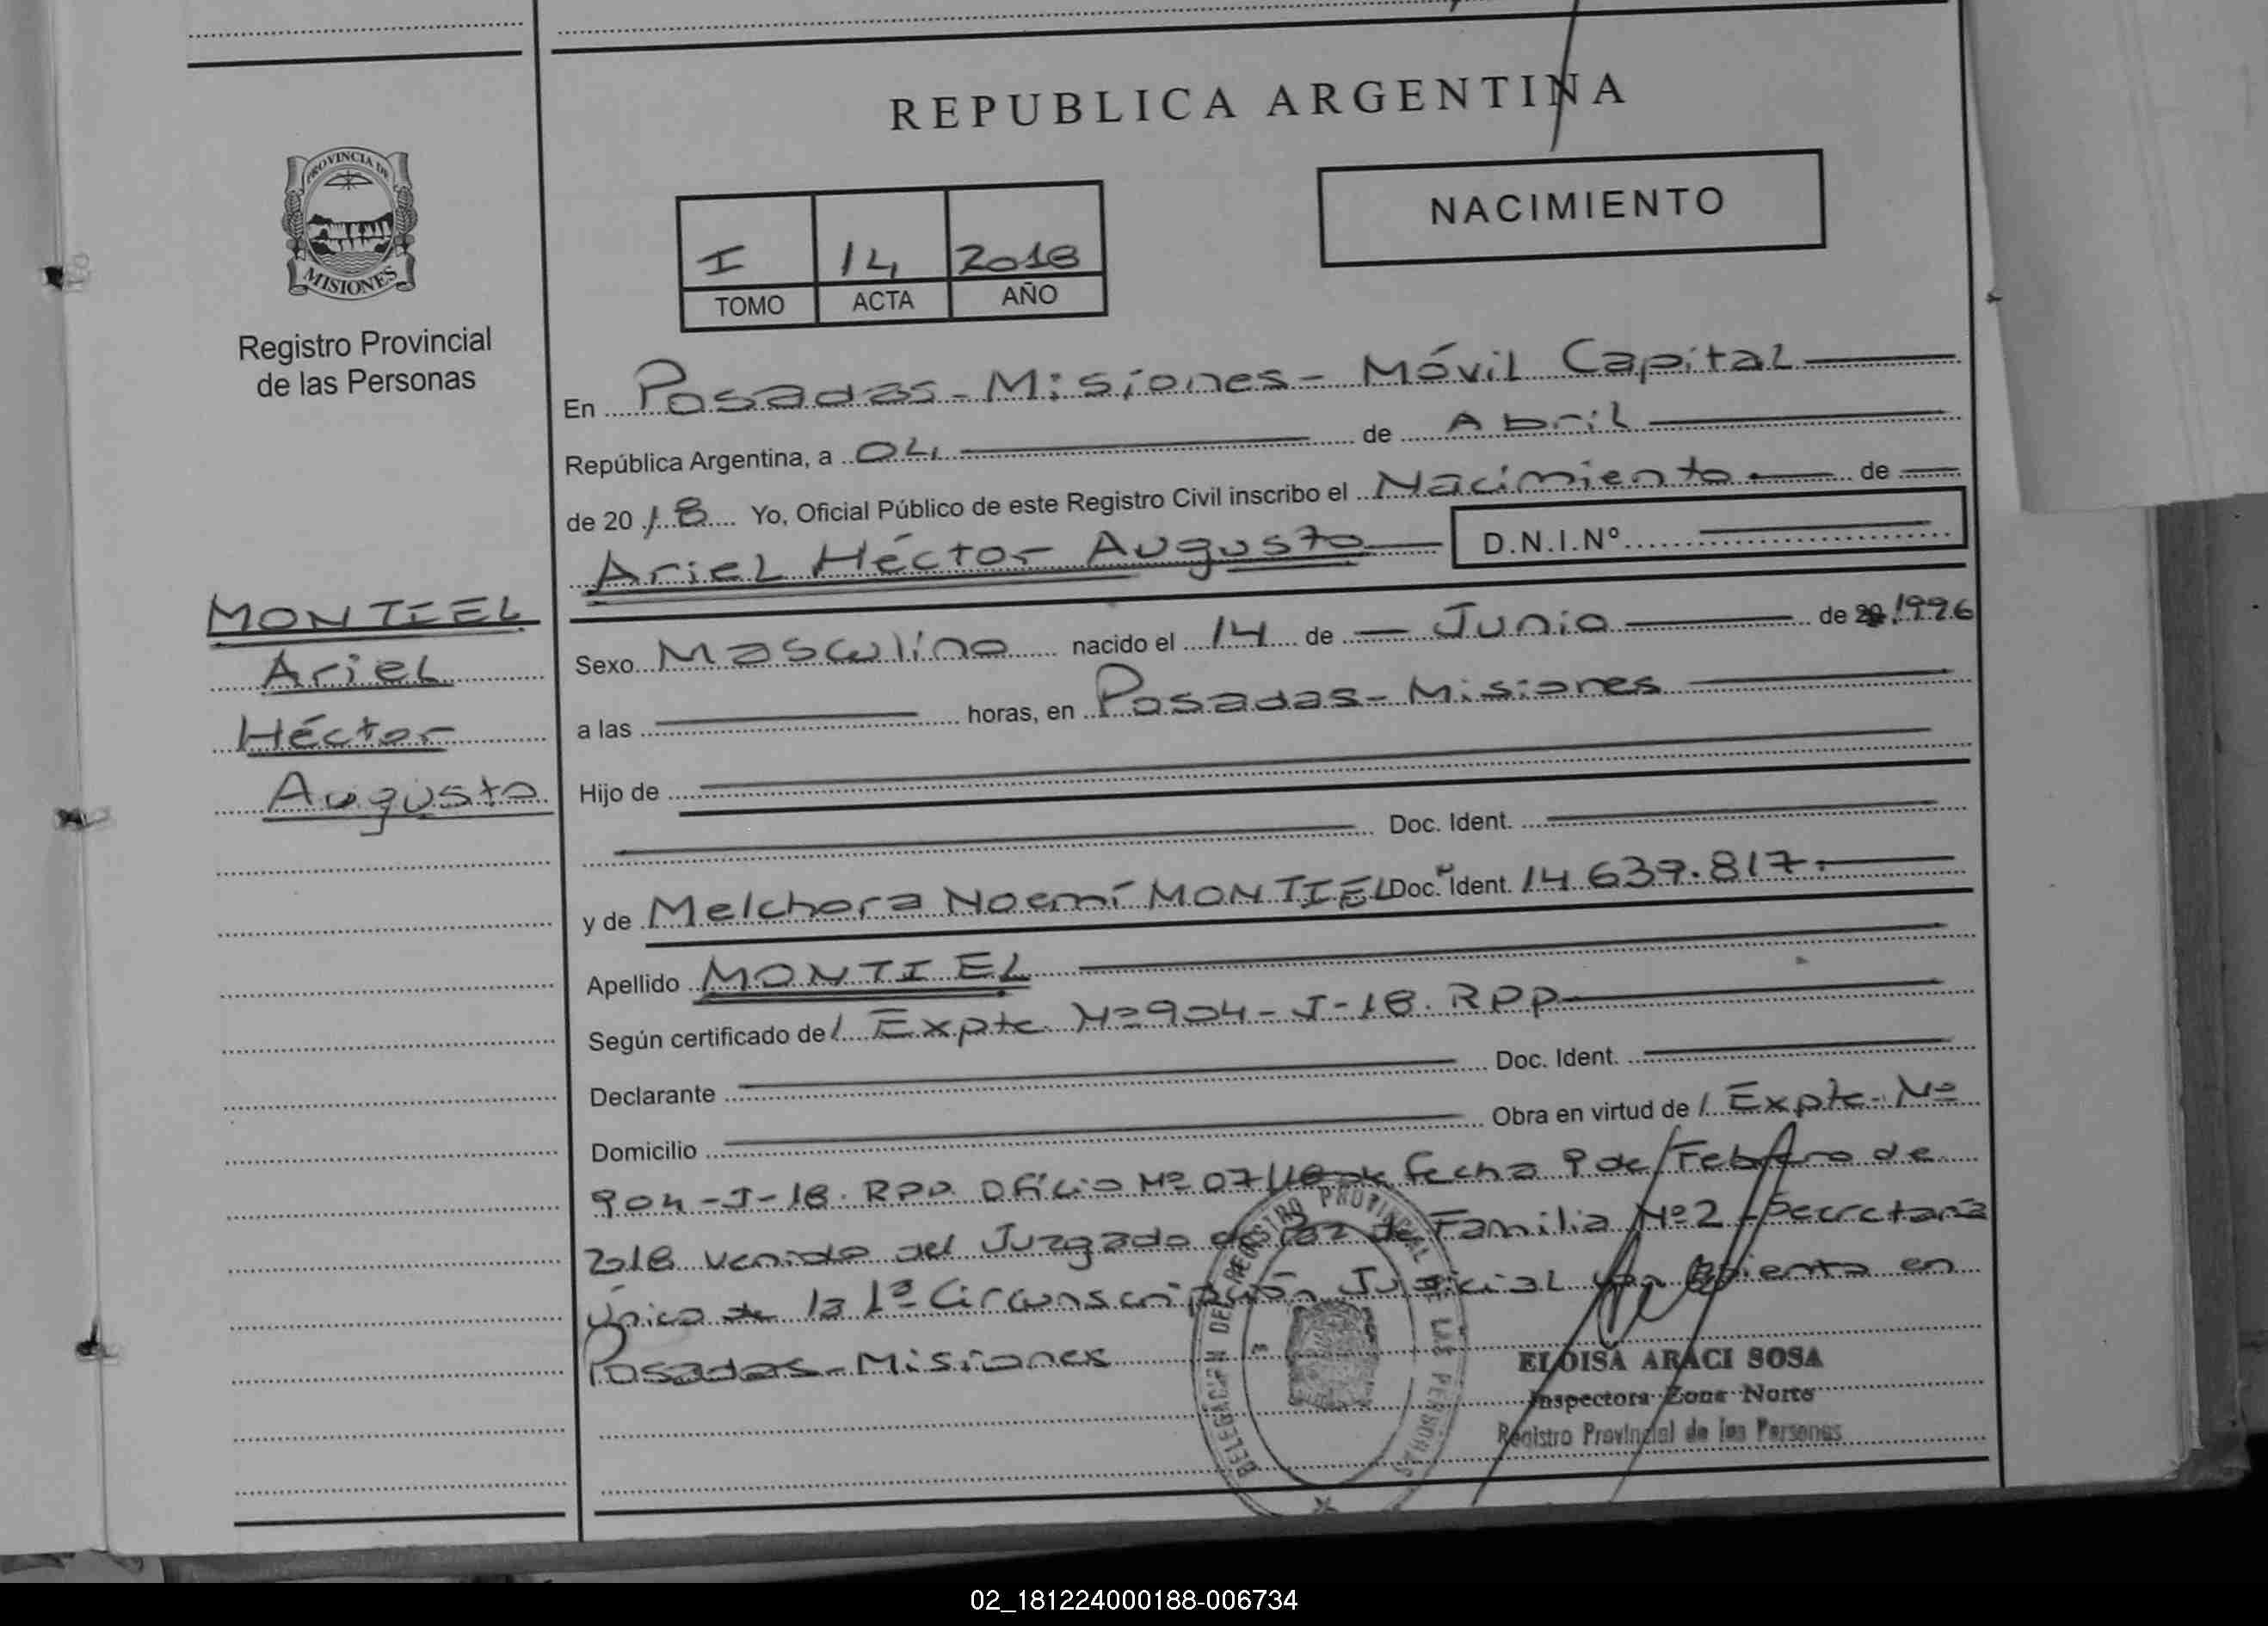 REPUBLICA ARGENTINA
PROVINCIA DE
MISIONES
Registro Provincial
de las Personas
NACIMIENTO
I 14 2018
TOMO ACTA AÑO
En Posadas - Misiones - Móvil Capital
República Argentina, a 04 de Abril
de 2018 Yo, Oficial Público de este Registro Civil inscribo el Nacimiento de
Ariel Héctor Augusto D.N.I.Nº
MONTIEL
Ariel
Héctor
Augusto
Sexo Masculino nacido el 14 de Junio de 20 1996
a las horas, en Posadas - Misiones
Hijo de
Doc. Ident.
y de Melchora Noemí MONTIEL Doc. Ident. 14 637.817.
Apellido MONTIEL
Según certificado de / Expte Nº 904 - J - 18. RPP
Declarante Doc. Ident.
Domicilio Obra en virtud de / Expte. Nº
904 - J - 18. RPP. Oficio Nº 07/18 de fecha 9 de Febrero de
2018 venido del Juzgado de Familia Nº 2 Secretaría
Única de la 1ª Circunscripción Judicial con asiento en
Posadas - Misiones
DELEGACION DEL REGISTRO PROVINCIAL DE LAS PERSONAS
ELOISA ARACI SOSA
Inspectora Zona Norte
Registro Provincial de las Personas
02_181224000188-006734